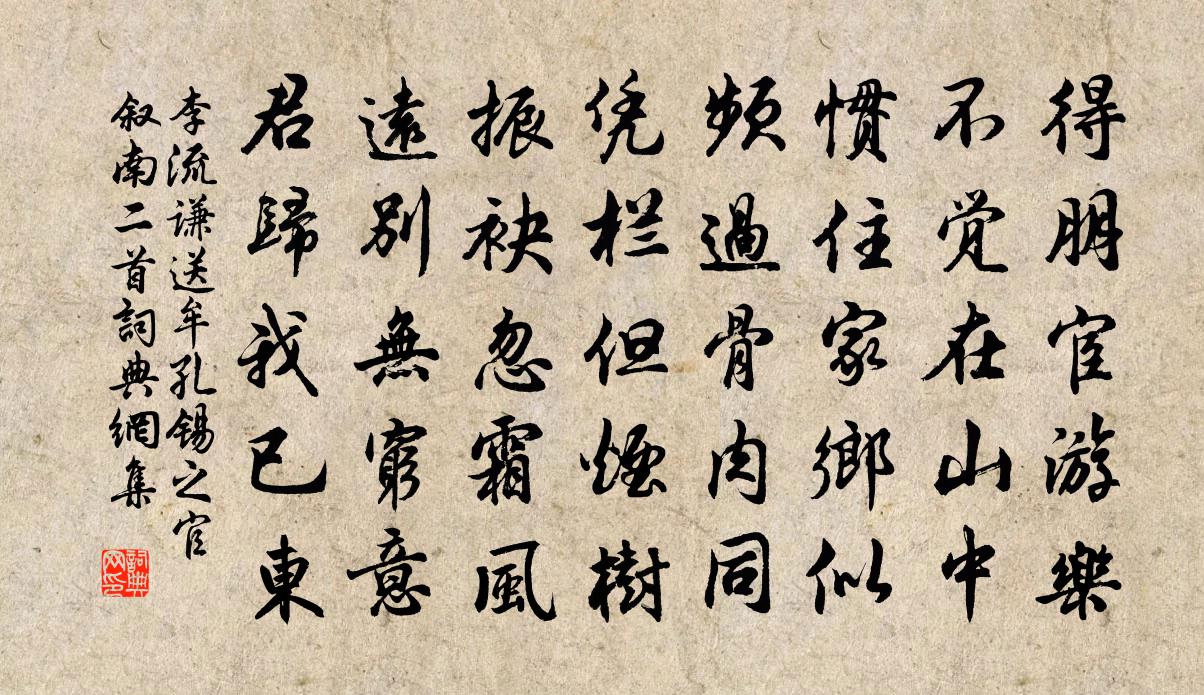 得朋宦游樂
不觉在山中
慣住家鄉似
頻過骨肉同
凭栏但煙樹
振袂忽霜風
遠別無窮意
君歸我已東
李流謙送牟孔锡之官
叙南二首詞典網集
詞典网印